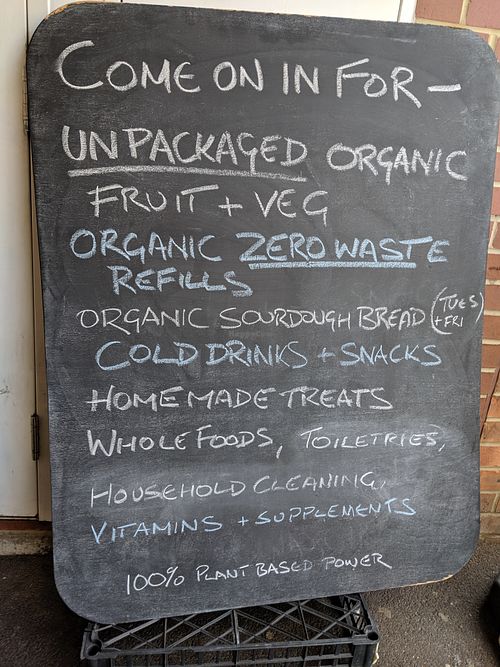 COME ON IN FOR —
UNPACKAGED ORGANIC
FRUIT + VEG
ORGANIC ZERO WASTE
REFILLS
ORGANIC SOURDOUGH BREAD (TUES
+ FRI)
COLD DRINKS + SNACKS
HOMEMADE TREATS
WHOLEFOODS, TOILETRIES,
HOUSEHOLD CLEANING,
VITAMINS + SUPPLEMENTS
100% PLANT BASED POWER